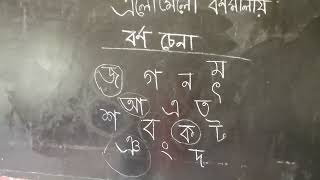 এলোমেলো বর্ণমালায়
বর্ণ চেনা
জ গ ন ম
ৎ
আ এ ত
শ ব ক ট
ঞ ং দ